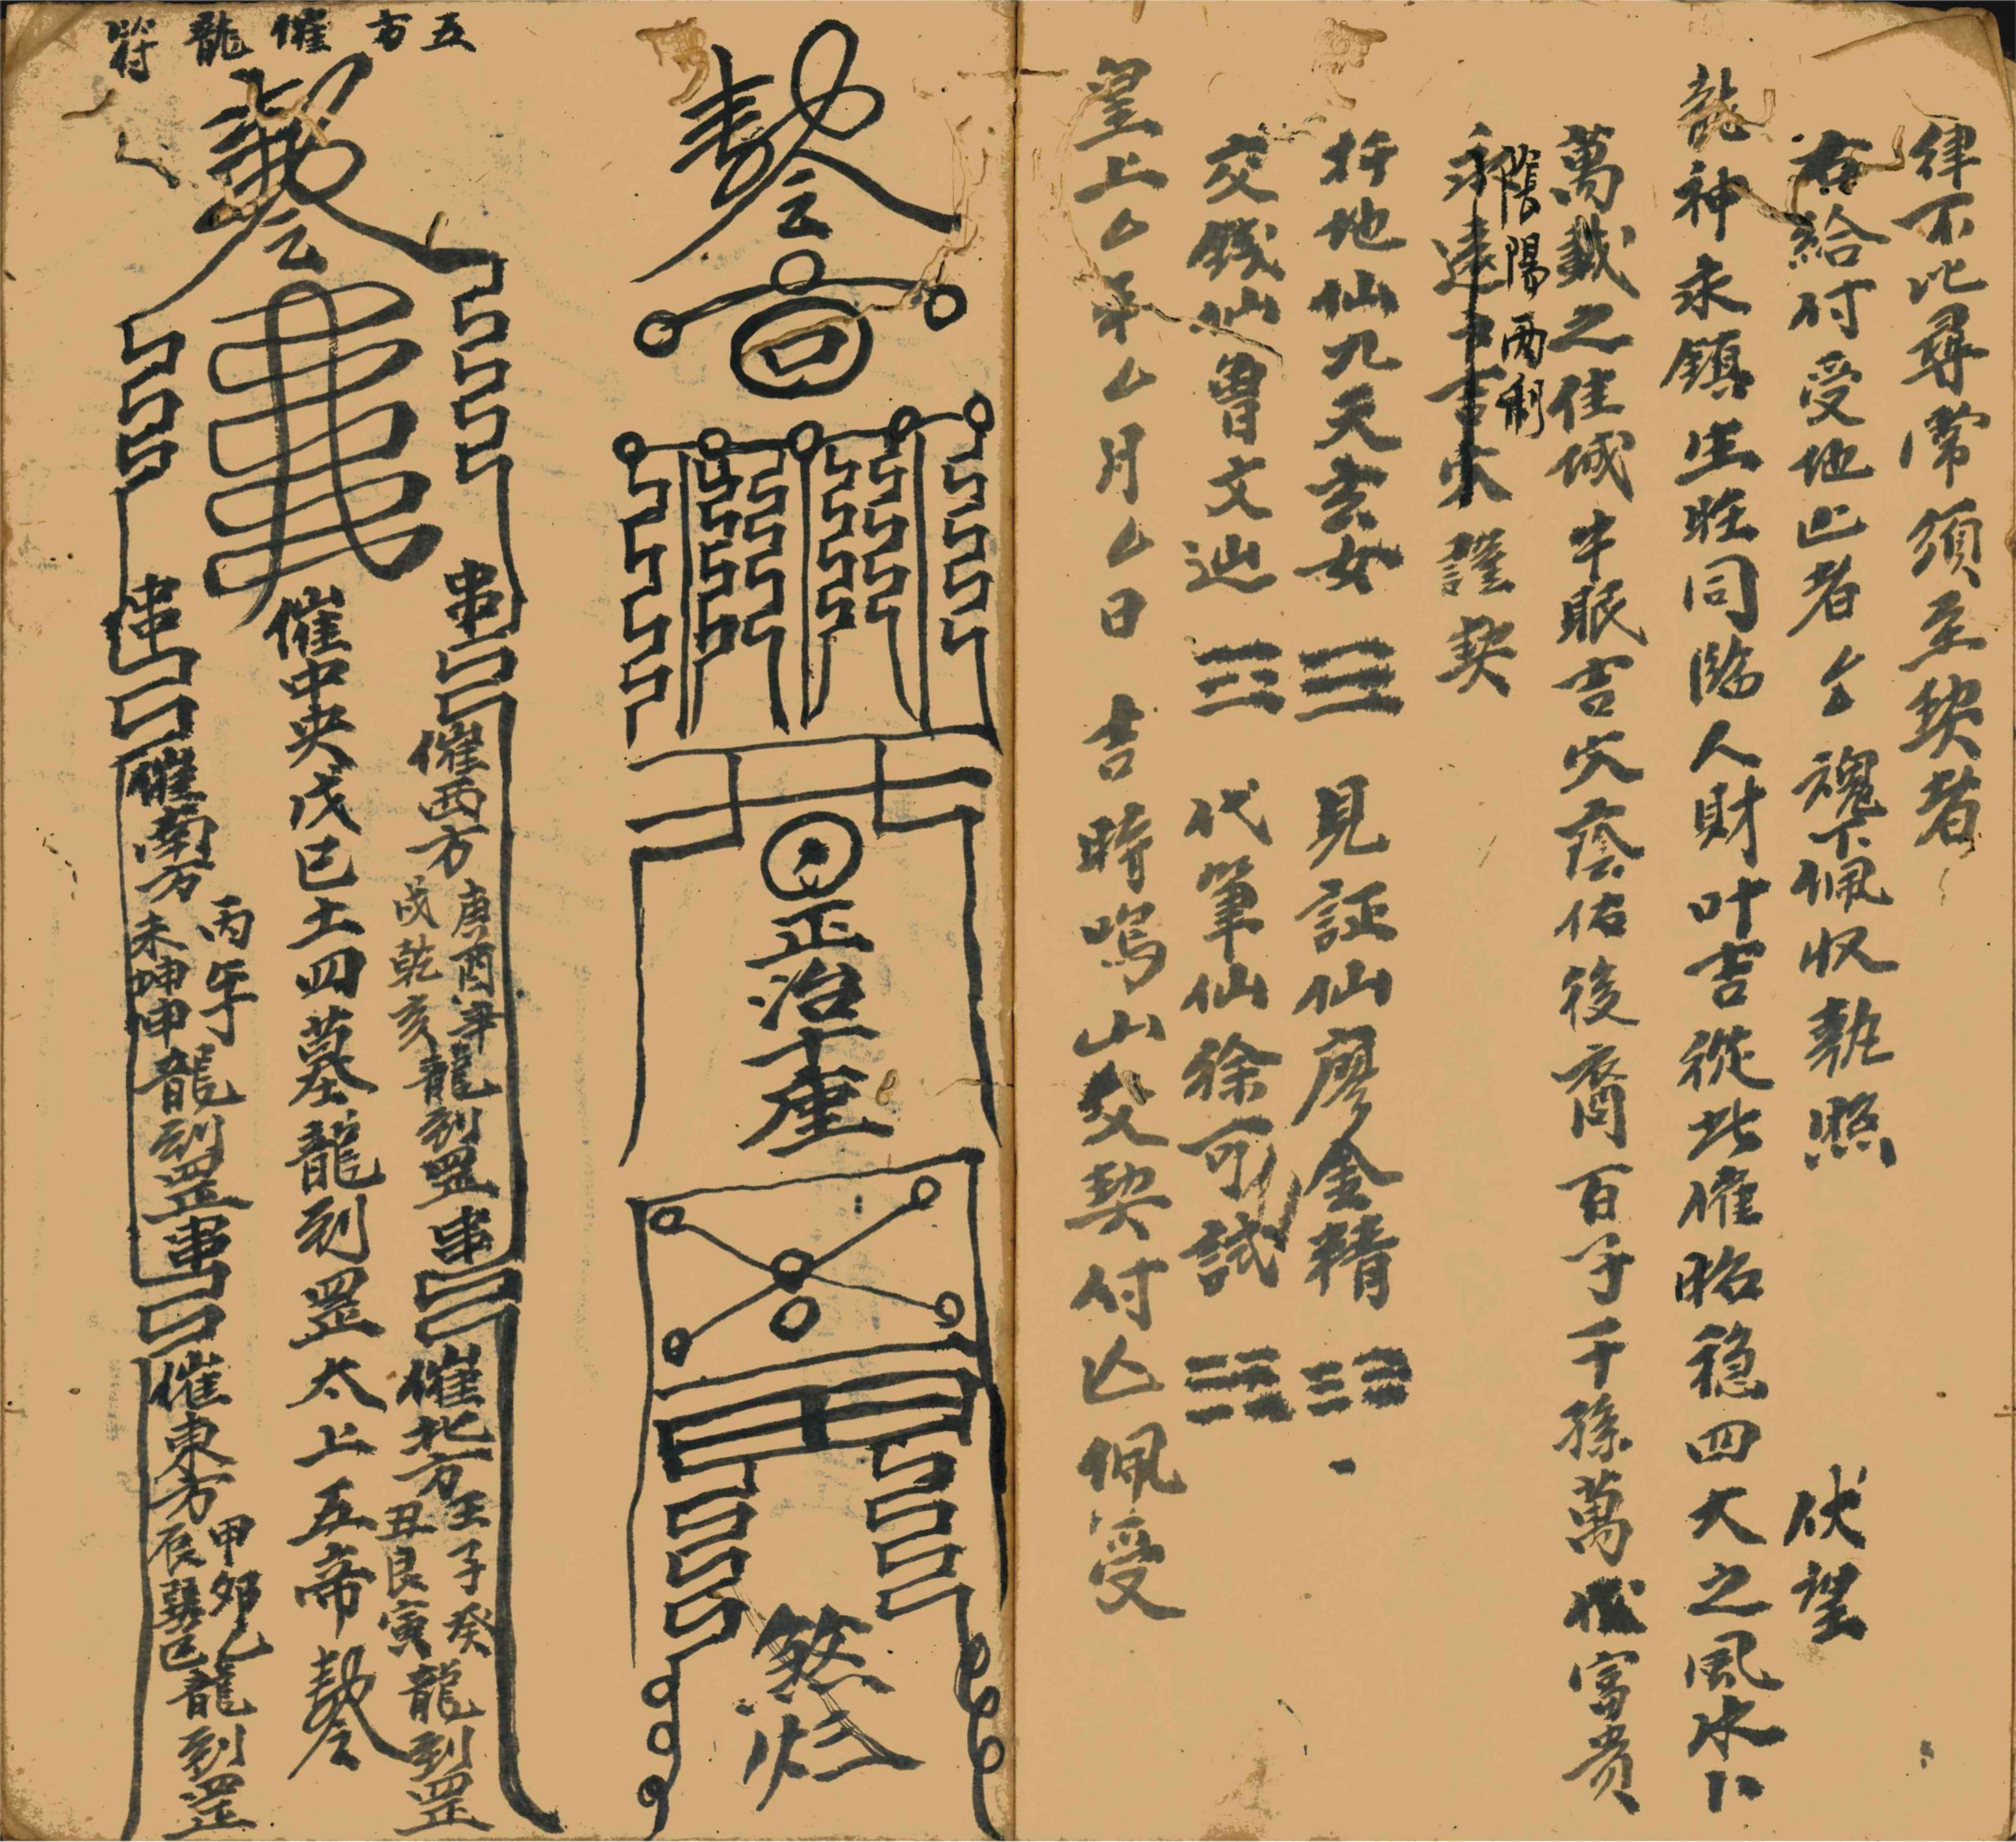 律不比尋常須至契者
右給付受地亡者厶厶魂下佩收執照 伏望
龍神永鎮生旺同臨人財叶吉從此催昭穩四大之風水卜
萬載之佳城牛眠吉穴蔭佑後裔百子千孫萬代富貴
陰陽兩利
永遠 吉穴謹契
扦地仙九天玄女 ☴ 見証仙廖金精
交錢仙曾文辿 代筆仙徐可試
皇上厶年厶月厶日 吉時鳴山交契付亡佩受
回
正治土
煞
五方催龍符
串 催西方 庚酉辛 戌乾亥 龍到罡 串 催北方 壬子癸 丑艮寅 龍到罡
催中央戊己土四墓龍到罡太上五帝
串 催南方 丙午丁 未坤申 龍到罡 串 催東方 甲卯乙 辰巽巳 龍到罡